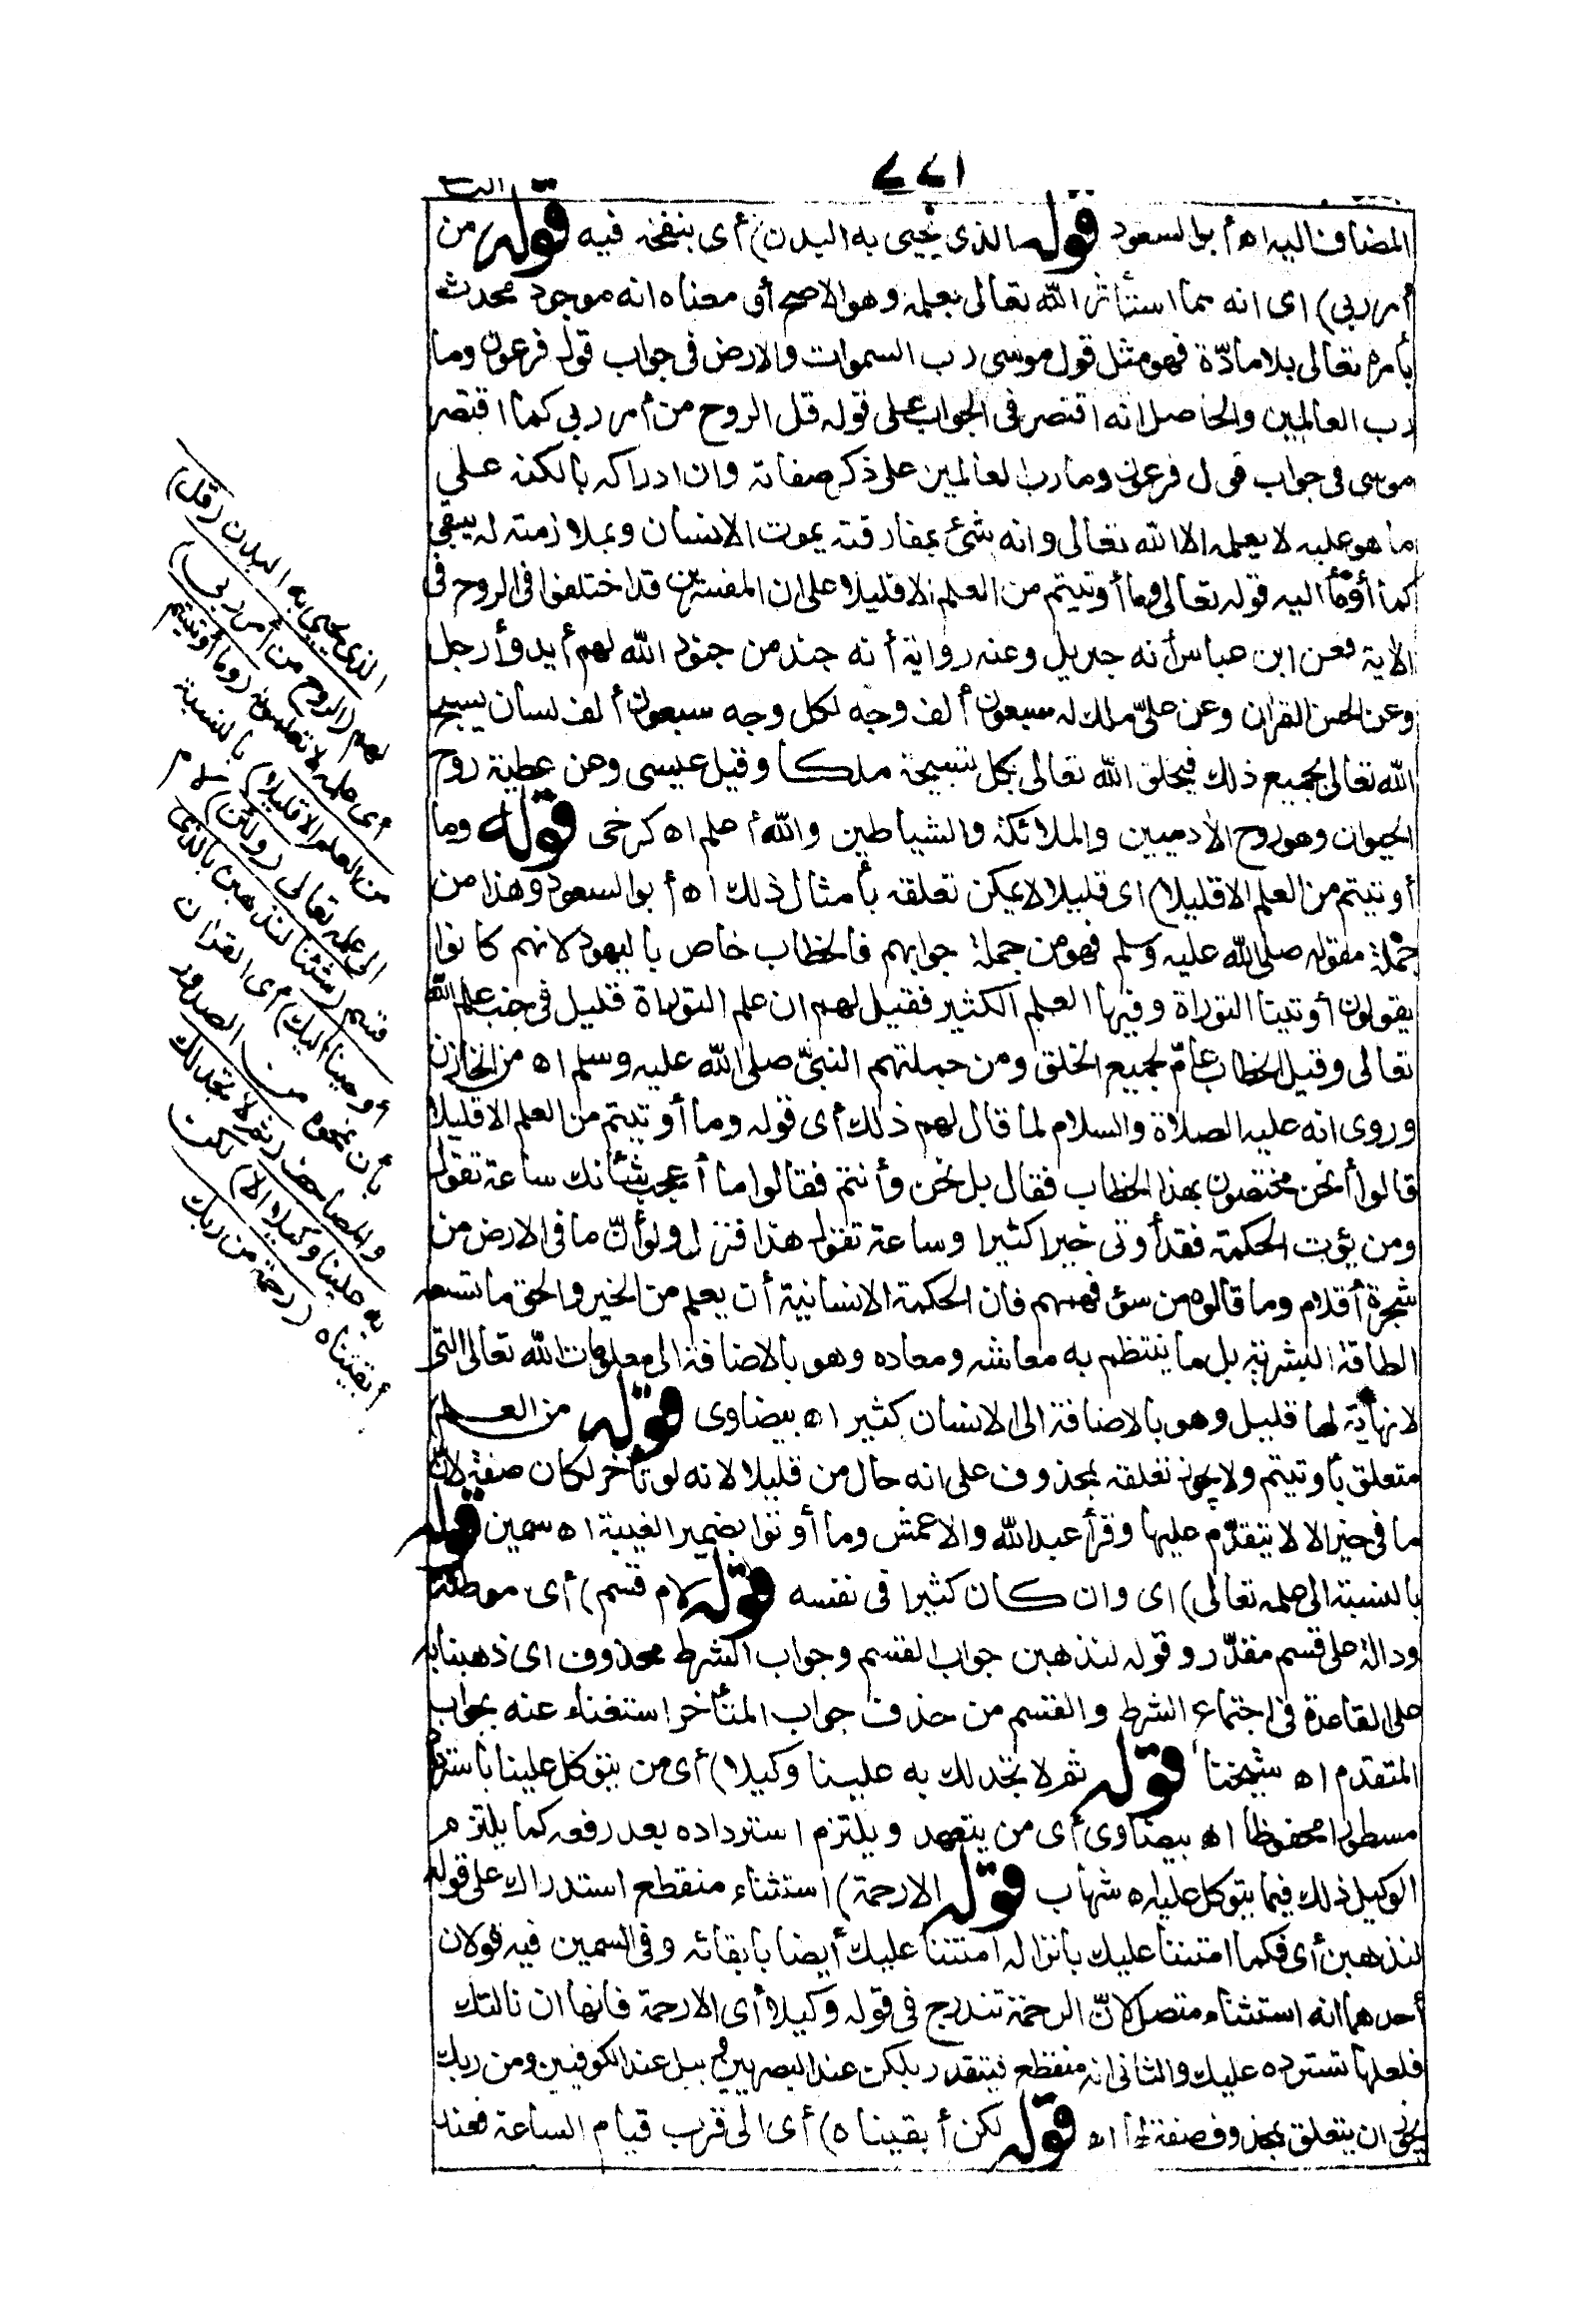 ١٦٦
المضاف اليه اه أبو السعود قوله الذى يحيى به البدن) أى بنفخه فيه قوله من
أمر ربي) اى انه مما استأثر الله تعالى بعلمه وهو الاصح أو معناه انه موجود محدث
بأمره تعالى بلا مادّة فهو مثل قول موسى رب السموات والارض فى جواب قول فرعون وما
رب العالمين والحاصل انه اقتصر فى الجواب على قوله قل الروح من أمر ربي كما اقتصر
موسى فى جواب قول فرعون وما رب العالمين على ذكر صفاته وان ادراكه بالكنه على
ما هو عليه لا يعلمه الا الله تعالى وانه شئ بمفارقته يموت الانسان وبملازمته له يبقى
كما أومأ اليه قوله تعالى وما أوتيتم من العلم الا قليلا على ان المفسرين قد اختلفوا فى الروح فى
الآية فعن ابن عباس أنه جبريل وعنه رواية أنه جند من جنود الله لهم أيد وأرجل
وعن الحسن القران وعن علىّ ملك له سبعون ألف وجه لكل وجه سبعون ألف لسان يسبح
الله تعالى بجميع ذلك فيخلق الله تعالى بكل تسبيحة ملكا وقيل عيسى وعن عطية روح
الحيوان وهو روح الآدميين والملائكة والشياطين والله أعلم اه كرخى قوله وما
أوتيتم من العلم الا قليلا) اى قليلا لا يمكن تعلقه بأمثال ذلك اه أبو السعود وهذا من
جملة مقوله صلى الله عليه وسلم فهو من جملة جوابهم فالخطاب خاص باليهود لانهم كانوا
يقولون أوتينا التوراة وفيها العلم الكثير فقيل لهم ان علم التوراة قليل فى جنب علم الله
تعالى وقيل الخطاب عامّ لجميع الخلق ومن جملتهم النبىّ صلى الله عليه وسلم اه من الخازن
وروى انه عليه الصلاة والسلام لما قال لهم ذلك أى قوله وما أوتيتم من العلم الا قليلا
قالوا أنحن مختصون بهذا الخطاب فقال بل نحن وأنتم فقالوا ما أعجب شأنك ساعة تقول
ومن يؤت الحكمة فقد أوتى خيرا كثيرا وساعة تقول هذا فنزل ولو أنّ ما فى الارض من
شجرة أقلام وما قالوه من سوء فهمهم فان الحكمة الانسانية أن يعلم من الخير والحق ما تسعه
الطاقة البشرية بل ما ينتظم به معاشه ومعاده وهو بالاضافة الى معلومات الله تعالى التى
لا نهاية لها قليل وهو بالاضافة الى الانسان كثير اه بيضاوى قوله من العلم
متعلق بأوتيتم ولا يجوز تعلقه بمحذوف على انه حال من قليلا لانه لو تأخر لكان صفة لانّ
ما فى حيز الا لا يتقدّم عليها وقرأ عبد الله والاعمش وما أوتوا بضمير الغيبة اه سمين قوله
بالنسبة الى علمه تعالى) اى وان كان كثيرا فى نفسه قوله لام قسم) أى موطئة
ودالة على قسم مقدّر وقوله لنذهبن جواب القسم وجواب الشرط محذوف اى ذهبنا به
على القاعدة فى اجتماع الشرط والقسم من حذف جواب المتأخر استغناء عنه بجواب
المتقدم اه شيخنا قوله ثم لا تجد لك به علينا وكيلا) أى من يتوكل علينا باسترداده
مسطورا محفوظا اه بيضاوى أى من يتعهد ويلتزم استرداده بعد رفعه كما يلتزم
الوكيل ذلك فيما يتوكل عليه اه شهاب قوله الا رحمة) استثناء منقطع استدراك على قوله
لنذهبن أى فكما امتننا عليك بانزاله امتننا عليك أيضا بابقائه وفى السمين فيه قولان
أحدهما انه استثناء متصل لانّ الرحمة تندرج فى قوله وكيلا أى الا رحمة فانها ان نالتك
فلعلها تسترده عليك والثانى انه منقطع فيتقدر بلكن عند البصريين وببل عند الكوفيين ومن ربك
يجوز ان يتعلق بمحذوف صفة لها اه قوله لكن أبقيناه) أى الى قرب قيام الساعة فعند
الذى يحيى به البدن (قل)
لهم (الروح من أمر ربى)
أى علمه لا تعلمونه (وما أوتيتم
من العلم الا قليلا) بالنسبة
الى علمه تعالى (ولئن) لام
قسم (شئنا لنذهبن بالذى
أوحينا اليك) أى القران
بأن نمحوه من الصدور
والمصاحف (ثم لا تجد لك
به علينا وكيلا الا) لكن
أبقيناه (رحمة من ربك